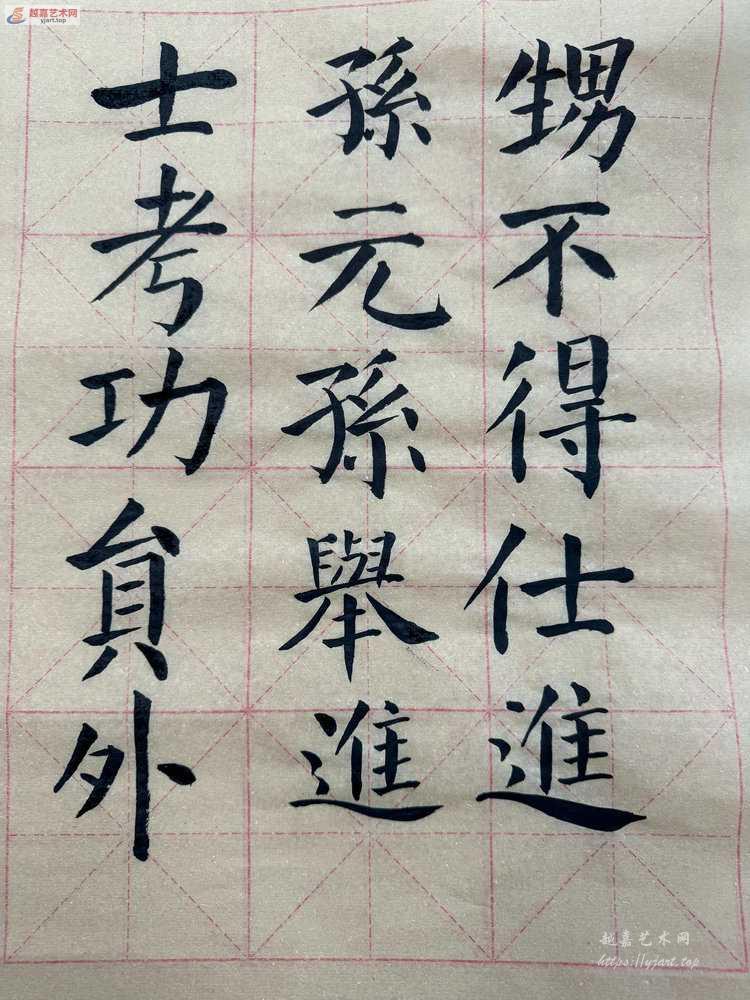 越嘉艺术网
yjart.top
甥不得仕進
孫元孫舉進
士考功貟外
越嘉艺术网
https://yjart.top